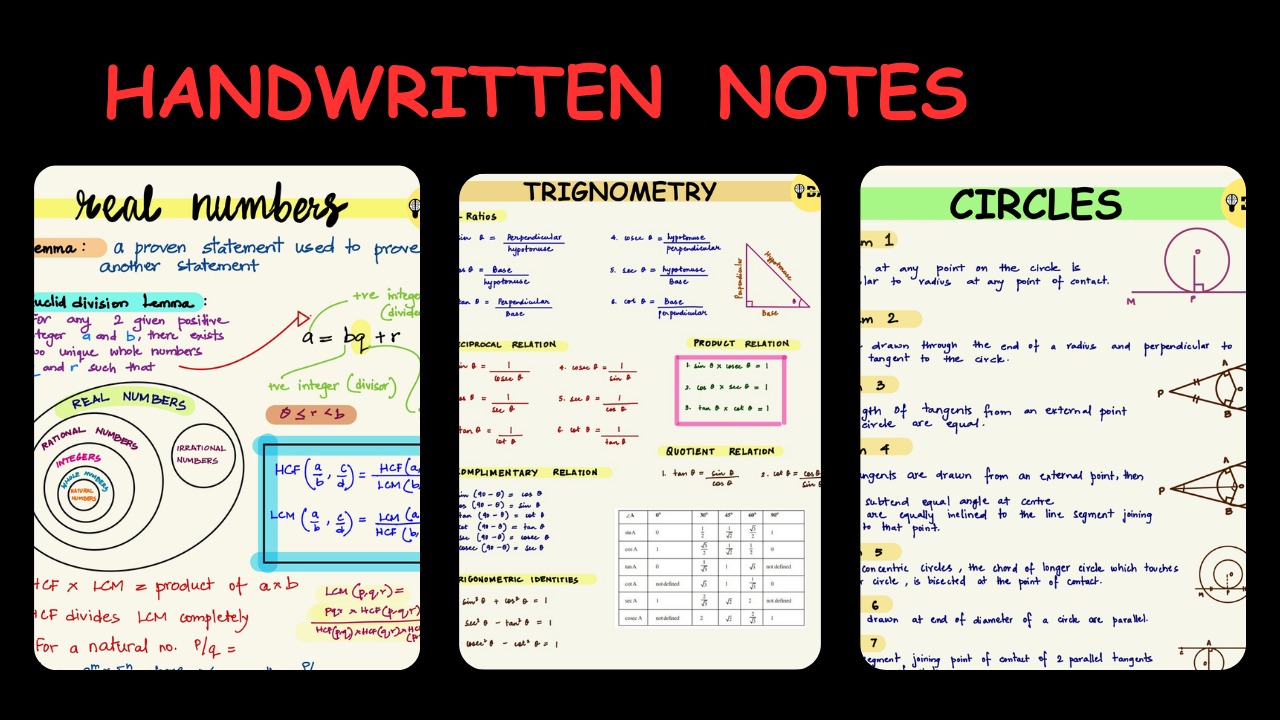 HANDWRITTEN NOTES
real numbers
emma : a proven statement used to prove
another statement
uclid division Lemma :
For any 2 given positive
teger a and b, there exists
wo unique whole numbers
and r such that
+ve intege
(divide
a = bq + r
+ve integer (divisor)
0 ≤ r < b
REAL NUMBERS
RATIONAL NUMBERS
INTEGERS
WHOLE NUMBERS
NATURAL NUMBERS
IRRATIONAL
NUMBERS
HCF (a/b, c/d) = HCF(a / LCM(b
LCM (a/b, c/d) = LCM(a / HCF(b
HCF × LCM = product of a×b
HCF divides LCM completely
For a natural no. P/q =
LCM (p,q,r) =
pqr × HCF(p,q,r)
HCF(p,q)×HCF(q,r)×HC
TRIGNOMETRY
Ratios
sin θ = Perpendicular/hypotonuse
4. cosec θ = hypotonuse/perpendicular
os θ = Base/hypotonuse
5. sec θ = hypotonuse/Base
tan θ = Perpendicular/Base
6. cot θ = Base/perpendicular
Perpendicular
Hypotonuse
θ
Base
ECIPROCAL RELATION
in θ = 1/cosec θ
4. cosec θ = 1/sin θ
os θ = 1/sec θ
5. sec θ = 1/cos θ
tan θ = 1/cot θ
6. cot θ = 1/tan θ
PRODUCT RELATION
1. sin θ × cosec θ = 1
2. cos θ × sec θ = 1
3. tan θ × cot θ = 1
QUOTIENT RELATION
1. tan θ = sin θ/cos θ
2. cot θ = cos θ/sin θ
OMPLIMENTARY RELATION
in (90 - θ) = cos θ
os (90 - θ) = sin θ
tan (90 - θ) = cot θ
cot (90 - θ) = tan θ
sec (90 - θ) = cosec θ
cosec (90 - θ) = sec θ
∠A 0° 30° 45° 60° 90°
sin A 0 1/2 1/√2 √3/2 1
cos A 1 √3/2 1/√2 1/2 0
tan A 0 1/√3 1 √3 not defined
cot A not defined √3 1 1/√3 0
sec A 1 2/√3 √2 2 not defined
cosec A not defined 2 √2 2/√3 1
RIGONOMETRIC IDENTITIES
sin² θ + cos² θ = 1
sec² θ - tan² θ = 1
cosec² θ - cot² θ = 1
CIRCLES
m 1
at any point on the circle is
lar to radius at any point of contact.
M
P
m 2
drawn through the end of a radius and perpendicular to
tangent to the circle.
3
gth of tangents from an external point
circle are equal.
A
P
O
B
4
angents are drawn from an external point, then
subtend equal angle at centre
are equally inclined to the line segment joining
to that point.
A
P
B
5
concentric circles, the chord of longer circle which touches
r circle, is bisected at the point of contact.
6
drawn at end of diameter of a circle are parallel.
7
egment joining point of contact of 2 parallel tangents